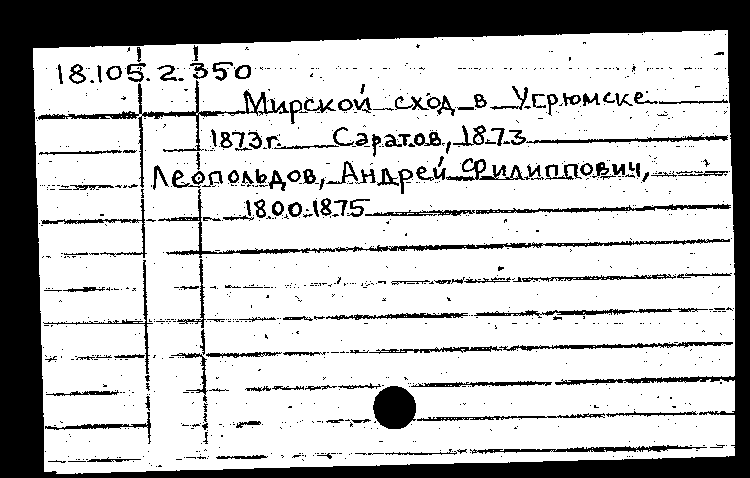 18.105.2.350
Мирской сход в Угрюмске
1873г. Саратов, 1873
Леопольдов, Андрей Филиппович,
1800-1875